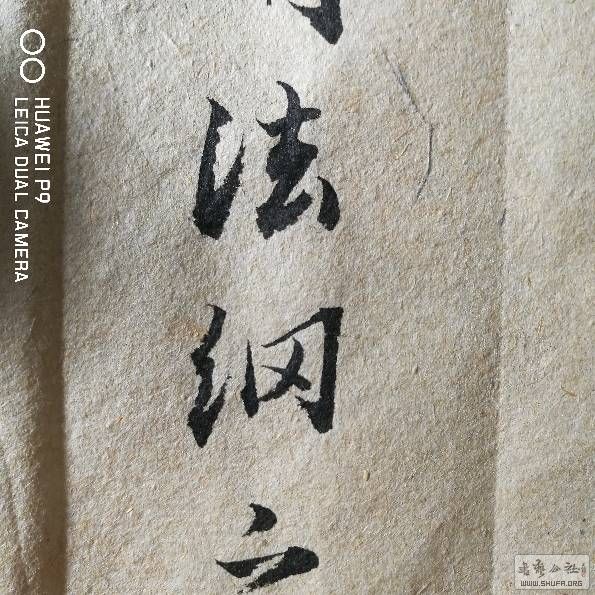 法
纲
HUAWEI P9
LEICA DUAL CAMERA
公社
WWW.SHUFA.ORG